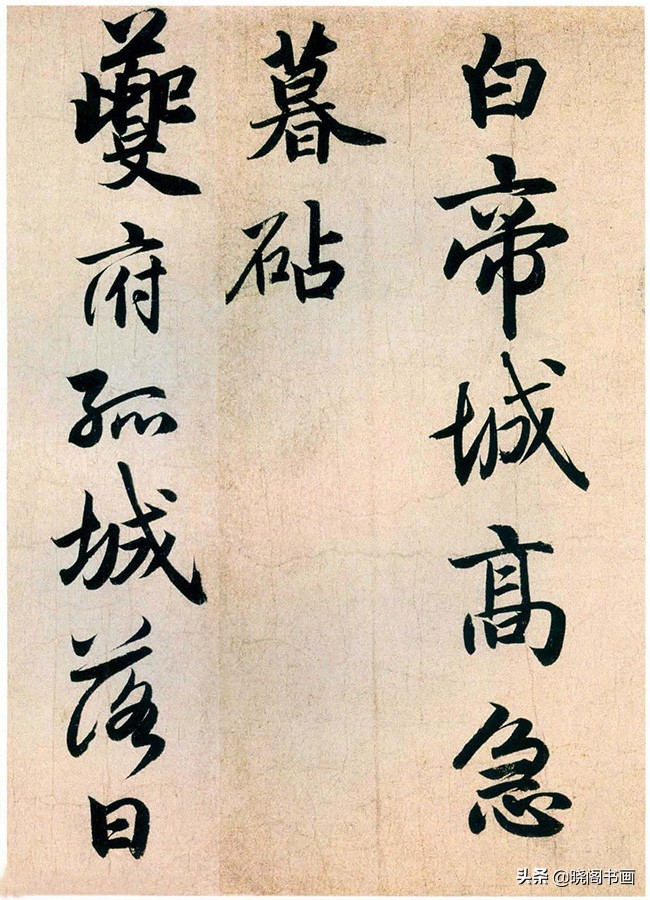 白帝城高急
暮砧
夔府孤城落日
头条 @晓阁书画